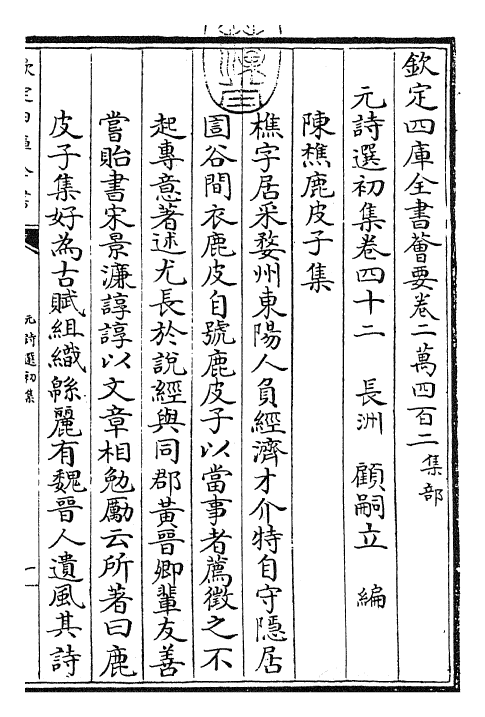 欽定四庫全書薈要卷二萬四百二 集部
元詩選初集卷四十二 長洲 顧嗣立 編
陳樵鹿皮子集
樵字居采婺州東陽人負經濟才介特自守隱居
圁谷間衣鹿皮自號鹿皮子以當事者薦徵之不
起專意著述尤長於說經與同郡黃晉卿輩友善
嘗貽書宋景濂諄諄以文章相勉勵云所著曰鹿
皮子集好為古賦組織緜麗有魏晉人遺風其詩
元詩選初集
一